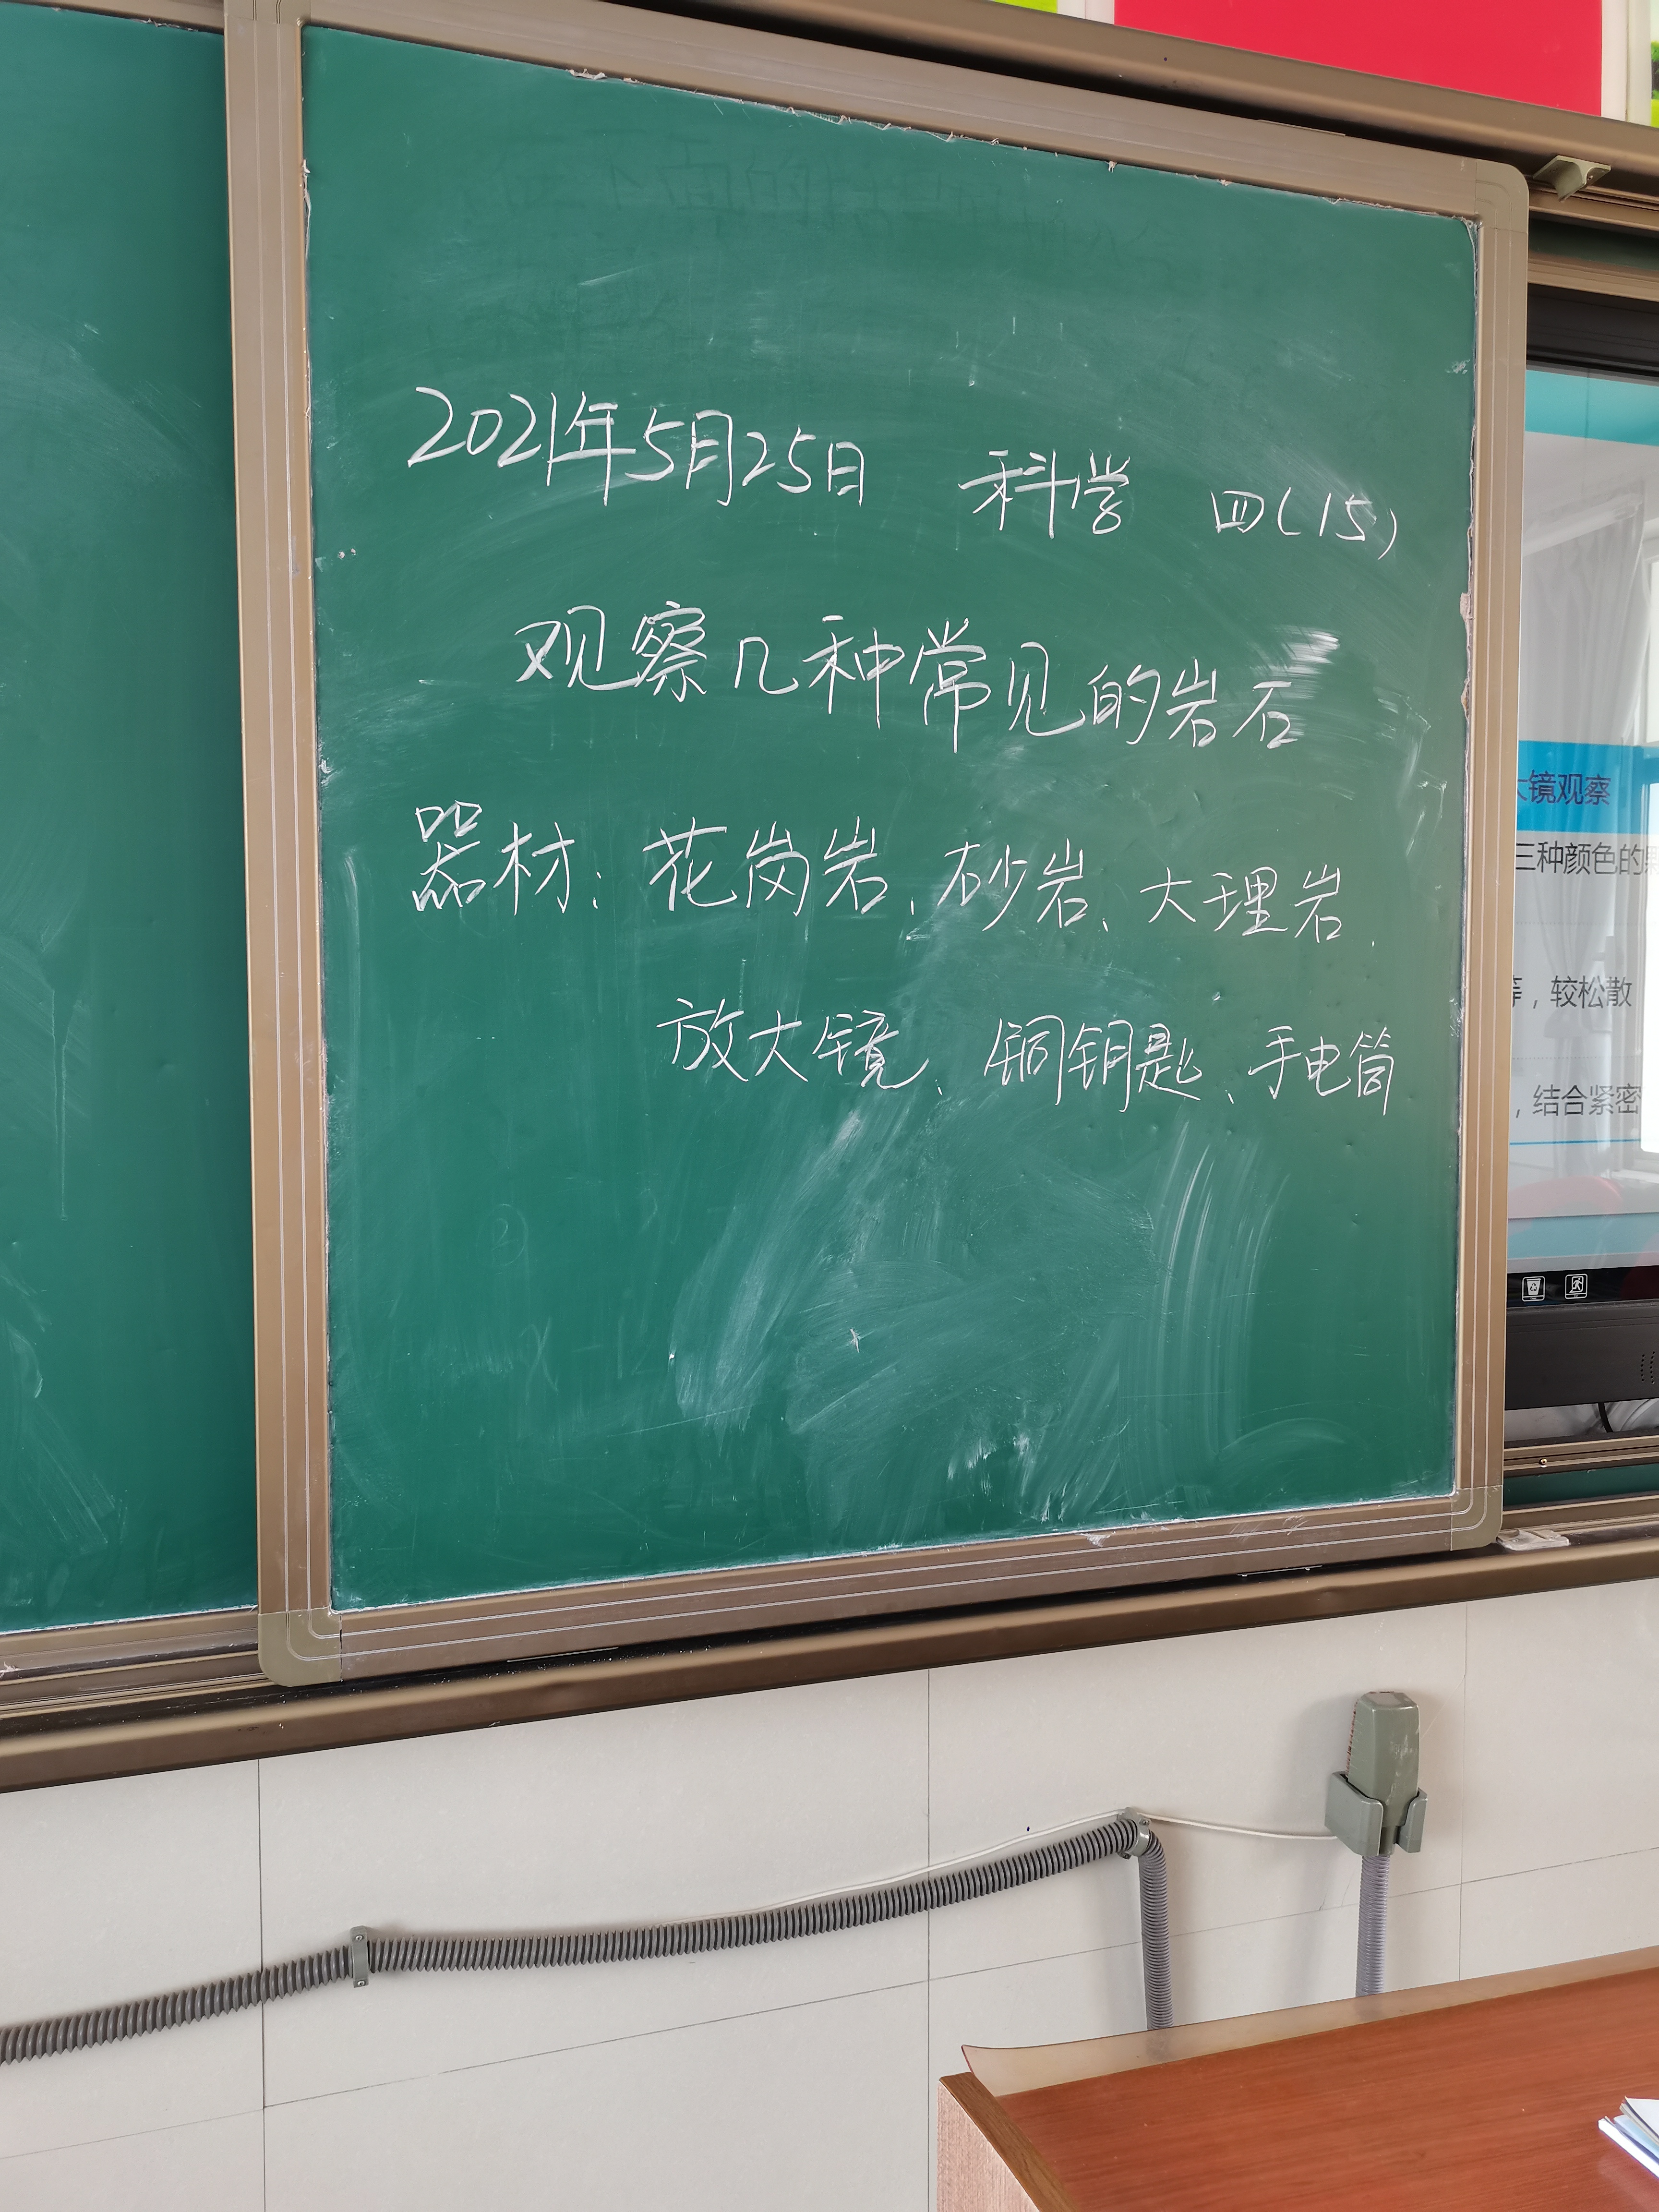 2021年5月25日 科学 四(15)
观察几种常见的岩石
器材：花岗岩、砂岩、大理岩、
放大镜、铜钥匙、手电筒
镜观察
三种颜色的
，较松散
，结合紧密